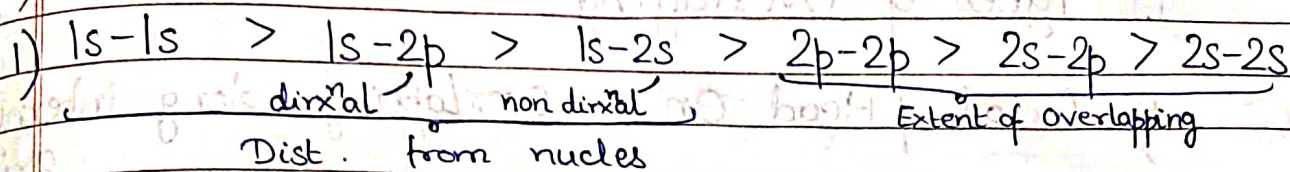 1) 1s-1s > 1s-2p > 1s-2s > 2p-2p > 2s-2p > 2s-2s
dirxⁿal non dirxⁿal Extent of overlapping
Dist. from nucles